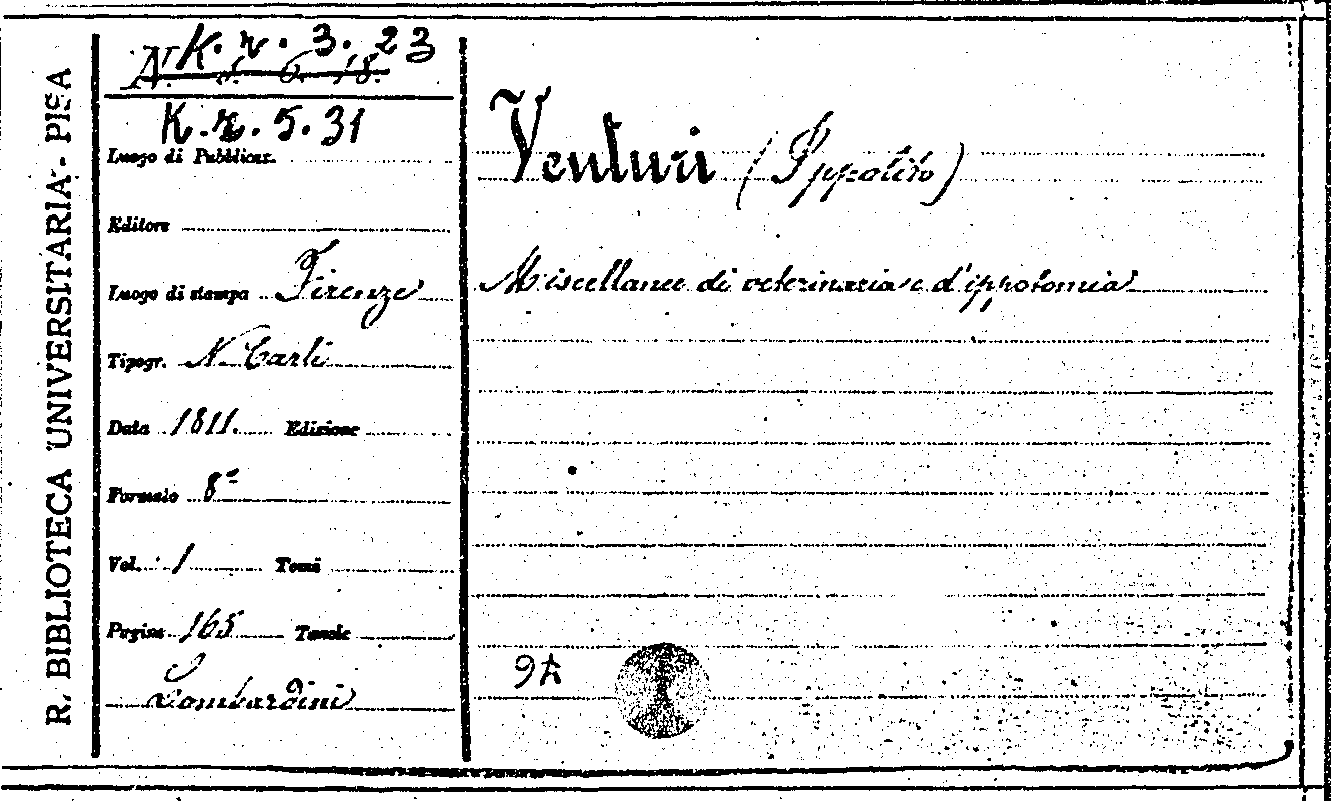 R. BIBLIOTECA UNIVERSITARIA - PISA
K. r. 3. 23
N. 6. 18.
K. r. 5. 31
Luogo di Pubblicaz.
Editore
Luogo di stampa Firenze
Tipogr. N. Carli
Data 1811. Edizione
Formato 8º
Vol. 1 Tomi
Pagine 165 Tavole
Lombardini
Venturi (Ippolito)
Miscellanee di veterinaria e d'ippotomia